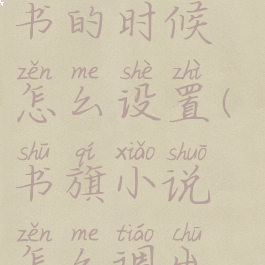 书的时候
zěn me shè zhì
怎么设置(
shū qí xiǎo shuō
书旗小说
zěn me tiáo chū
怎么调出